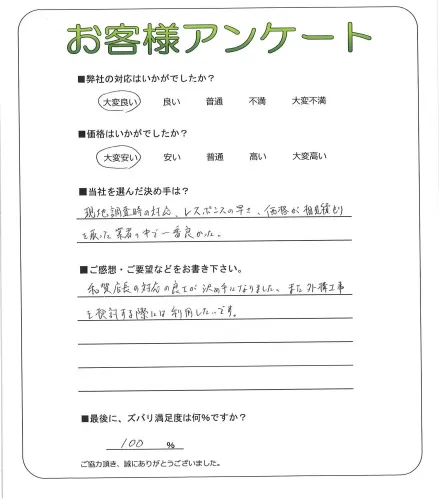 お客様アンケート
■弊社の対応はいかがでしたか？
大変良い 良い 普通 不満 大変不満
■価格はいかがでしたか？
大変安い 安い 普通 高い 大変高い
■当社を選んだ決め手は？
現地調査時の対応、レスポンスの早さ、価格が相見積もり
を取った業者の中で一番良かった。
■ご感想・ご要望などをお書き下さい。
店長の対応の良さが決め手になりました。また外構工事
を検討する際には利用したいです。
■最後に、ズバリ満足度は何％ですか？
100 %
ご協力頂き、誠にありがとうございました。